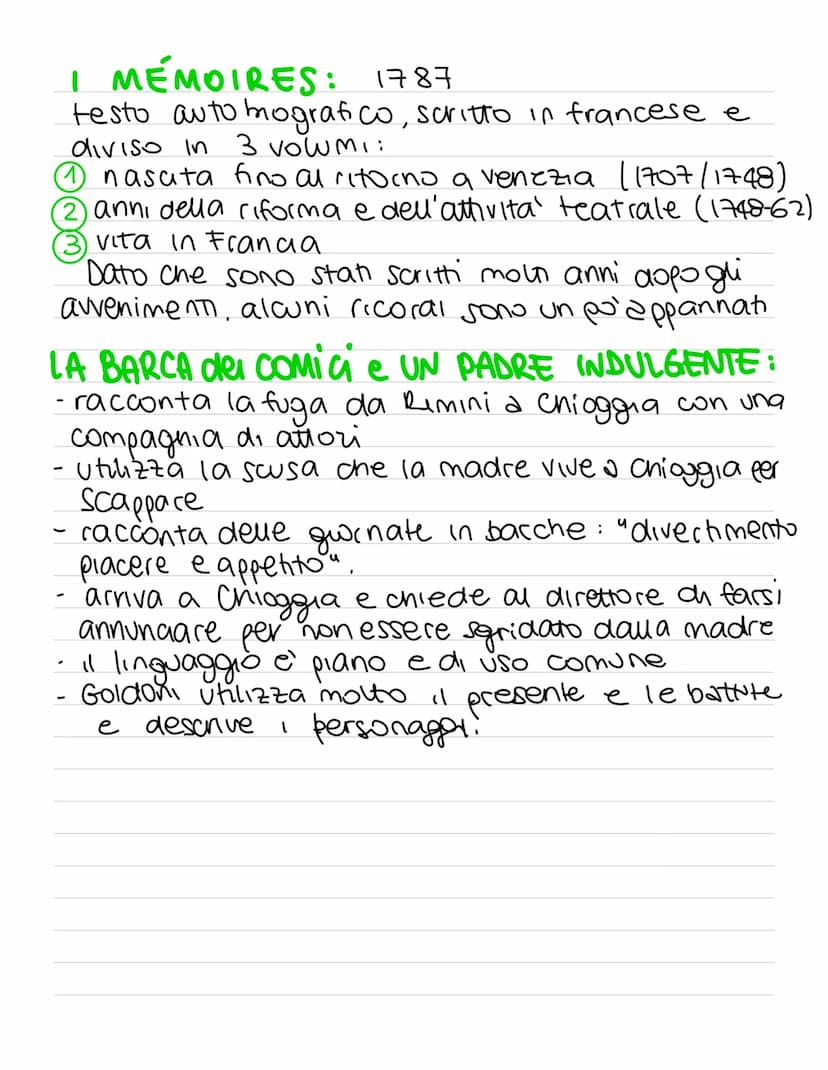 I MÉMOIRES: 1787
testo autobiografico, scritto in francese e
diviso in 3 volumi:
① nascita fino al ritorno a venezia (1707/1748)
② anni della riforma e dell'attivita' teatrale (1748-62)
③ vita in Francia
Dato che sono stati scritti molti anni dopo gli
avvenimenti, alcuni ricordi sono un po' appannati
LA BARCA dei COMICI e UN PADRE INDULGENTE:
- racconta la fuga da Rimini a Chioggia con una
compagnia di attori
- utilizza la scusa che la madre vive a Chioggia per
scappare
- racconta delle giornate in barche: "divertimento
piacere e appetito".
- arriva a Chioggia e chiede al direttore di farsi
annunciare per non essere sgridato dalla madre
- il linguaggio e' piano e di uso comune
- Goldoni utilizza molto il presente e le battute
e descrive i personaggi.